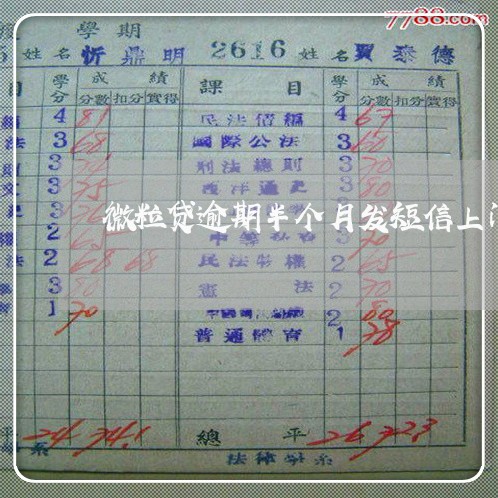 7788.com
學期
姓名 忻鼎明 2616 姓名 賈泰德
目 學分 成績 課目 學分 成績
分數 扣分 實得 分數 扣分 實得
4 81 民法債編 4 67
法 3 68 國際公法 3 60
3 刑法總則 3 70
3 75 西洋通史 3 80
3
微粒贷逾期半个月发短信上
2 70
法 2 68 68 民法物權 2 65
3 80 憲法 2 70
1 70 2 80
普通體育 1 78
平 24 74.1 總平 26 72.3
系 法律學系